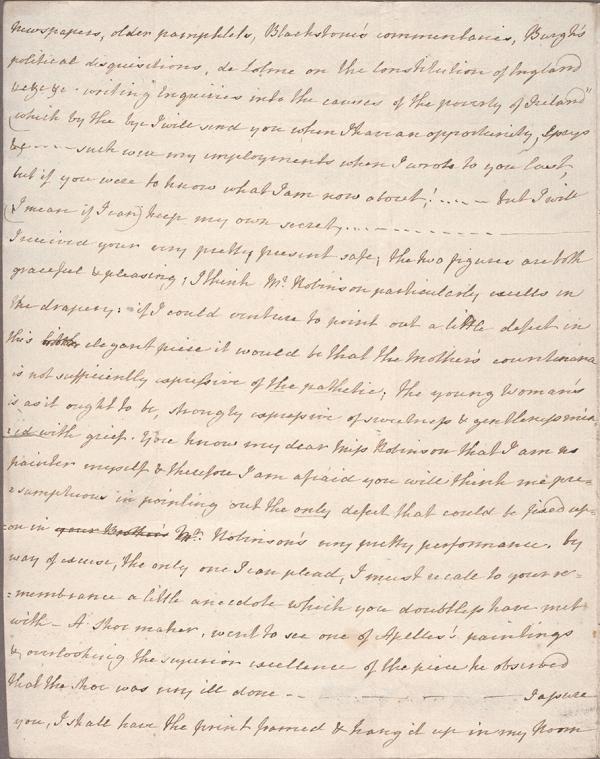 Newspapers, older pamphlets, Blackstone's commentaries, Burgh's
political disquisitions, de Lolme on the Constitution of England
&c &c &c - writing Enquiries into the causes of the poverty of Ireland"
(which by the bye I will send you when I have an opportunity, Essays
&c ---- such were my employments when I wrote to you last,
but if you were to know what I am now about! .... - but I will
(I mean if I can) keep my own secret. ..--------
I received your very pretty present safe; the two figures are both
graceful & pleasing; I think Mr. Robinson particularly excells in
the drapery: if I could venture to point out a little defect in
this elegant piece it would be that the Mother's countenance
is not sufficiently expressive of the pathetic; the young Woman's
is as it ought to be, strongly expressive of sweetness & gentleness mix-
=ed with grief. You know my dear Miss Robinson that I am no
painter myself & therefore I am afraid you will think me pre-
=sumptuous in pointing out the only defect that could be fixed up-
=on in your Brother's Mr. Robinson's very pretty performance. By
way of excuse, the only one I can plead, I must recall to your re-
=membrance a little anecdote which you doubtless have met
with - A Shoemaker, went to see one of Apelles's paintings
& overlooking the superior excellence of the piece he observed
that the shoe was very ill done -- - - - - - I assure
you, I shall have the print framed & hang it up in my Room